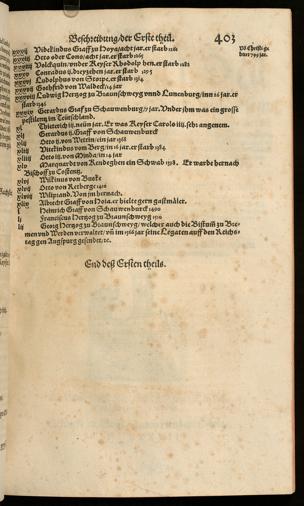 Beschreibung/der Erste theil. 403
Widekindus Graff zu Hoya/acht jar. er starb 1261
Otto oder Cono/acht jar. er starb 1265
Volckquin/vnder Keyser Rhodolp hen. er starb
Conradus ij. dreyzehen jar. er starb 1295
Ludolphus von er starb
Gotfrid von Waldeck/14 jar
Ludwig Hertzog zu Braunschweyg vnnd Lunenburg/inn 16 jar. er
starb 1346
Gerardus Graf zu Schauwenburg/7 jar. Vnder ihm was ein grosse
pestilentz in Teütschland.
Thieterich iij. neün jar. Er was Keyser Carols iiij. sehr angenem.
Gerardus ij. Graff von Schauwenburck
Otto ij. von Wettin/ein jar 1368
Widekindus vom Berg/in 16 jar. er starb
Otto iij. von Minda/in 14 jar
Marquardus von Randeghen ein Schwab 1398. Er warde hernach
Bischoff zu Costentz.
Wilkinus von Bueke
Otto von Retberge
Wilprand. Von jm hernach.
Albrecht Graff von Hoia. er hielte gern gastmäler.
Heinrich Graff von Schauwenburg
Franciscus Hertzog zu Braunschweyg
Georg Hertzog zu Braunschweyg/welcher auch die Bistumb zu Bre-
men vnd Werden verwaltet/vñ im 1566 jar seine Legaten auff den Reichs-
tag gen Augspurg gesendet/etc.
End deß Ersten theils.